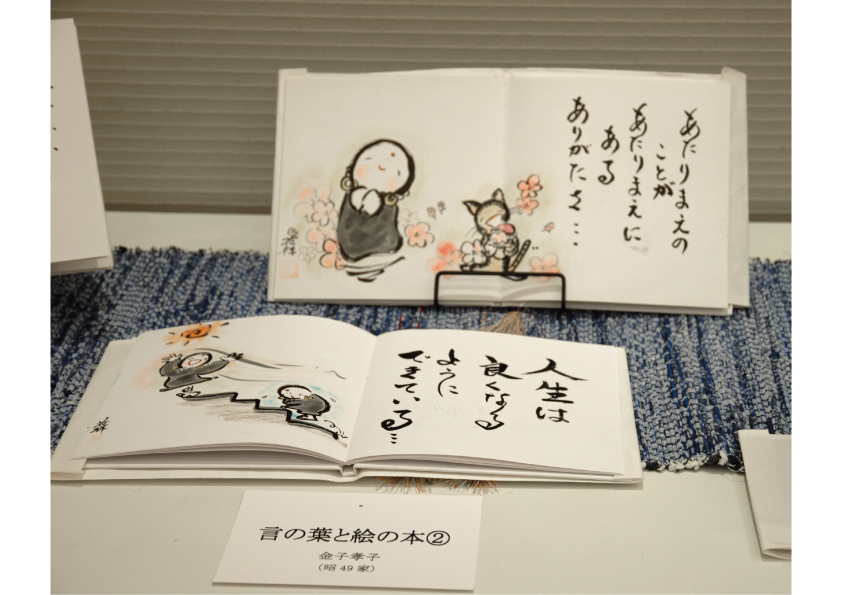 あたりまえの
ことが
あたりまえに
ある
ありがたさ…
人生は
良くなる
ように
できている…
言の葉と絵の本②
金子孝子
(昭49家)